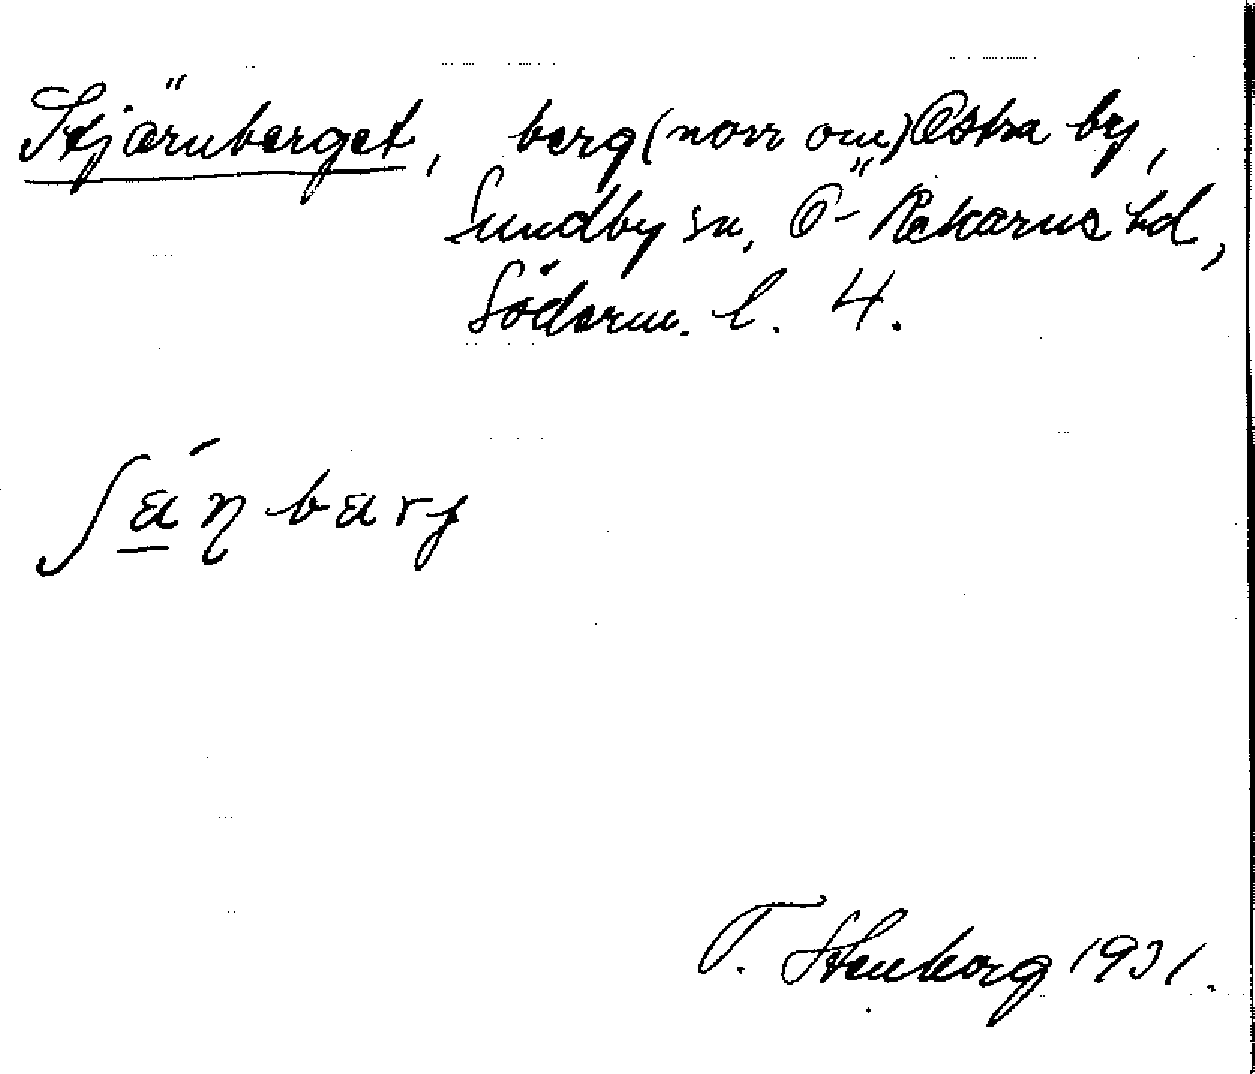 Stjärnberget, berg (norr om) Östra by,
Sundby sn, Ö- Rekarne hd,
Söderm. l. 4.
T. Stenborg 1931.